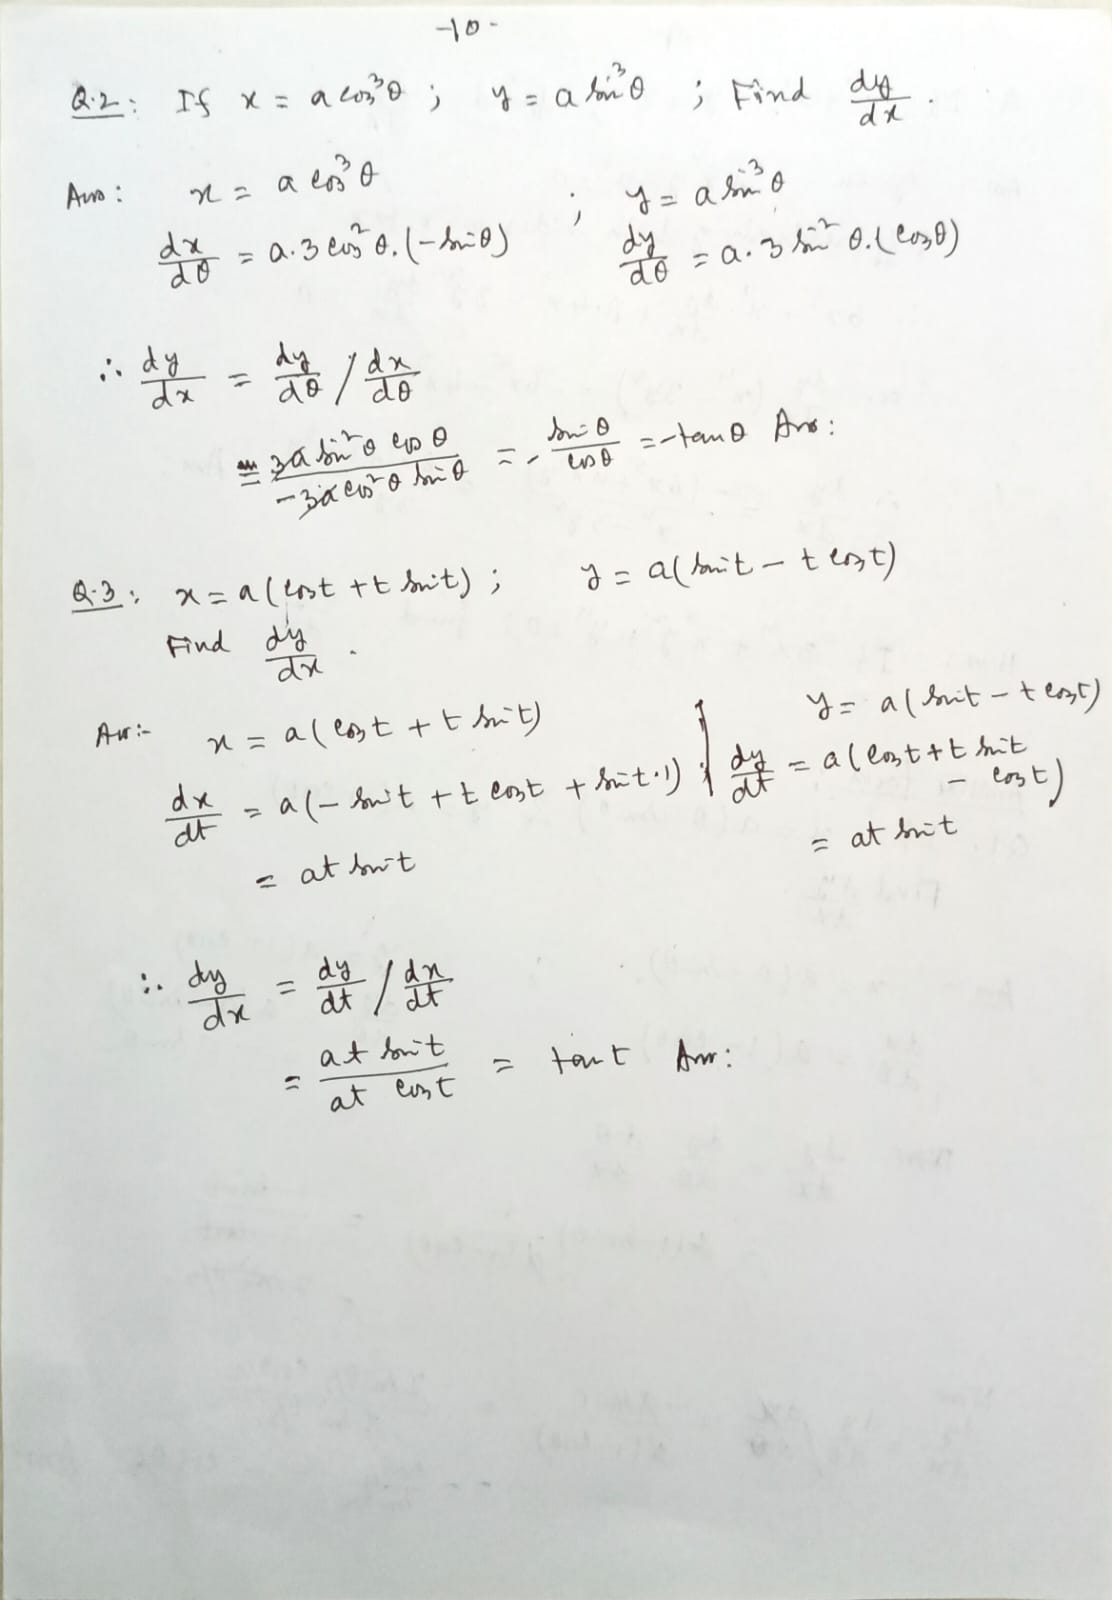 -10-
Q.2: If x = a cos³θ ; y = a sin³θ ; Find dy/dx .
Ans: x = a cos³θ ; y = a sin³θ
dx/dθ = a.3 cos²θ.(-sinθ) dy/dθ = a.3 sin²θ.(cosθ)
∴ dy/dx = dy/dθ / dx/dθ
= 3a sin²θ cosθ / -3a cos²θ sinθ = - sinθ/cosθ = -tanθ Ans:
Q.3: x = a(cost + t sint) ; y = a(sint - t cost)
Find dy/dx .
Ans:- x = a(cost + t sint) ; y = a(sint - t cost)
dx/dt = a(-sint + t cost + sint.1) dy/dt = a(cost + t sint - cost)
= at sint = at sint
∴ dy/dx = dy/dt / dx/dt
= at sint / at cost = tant Ans: